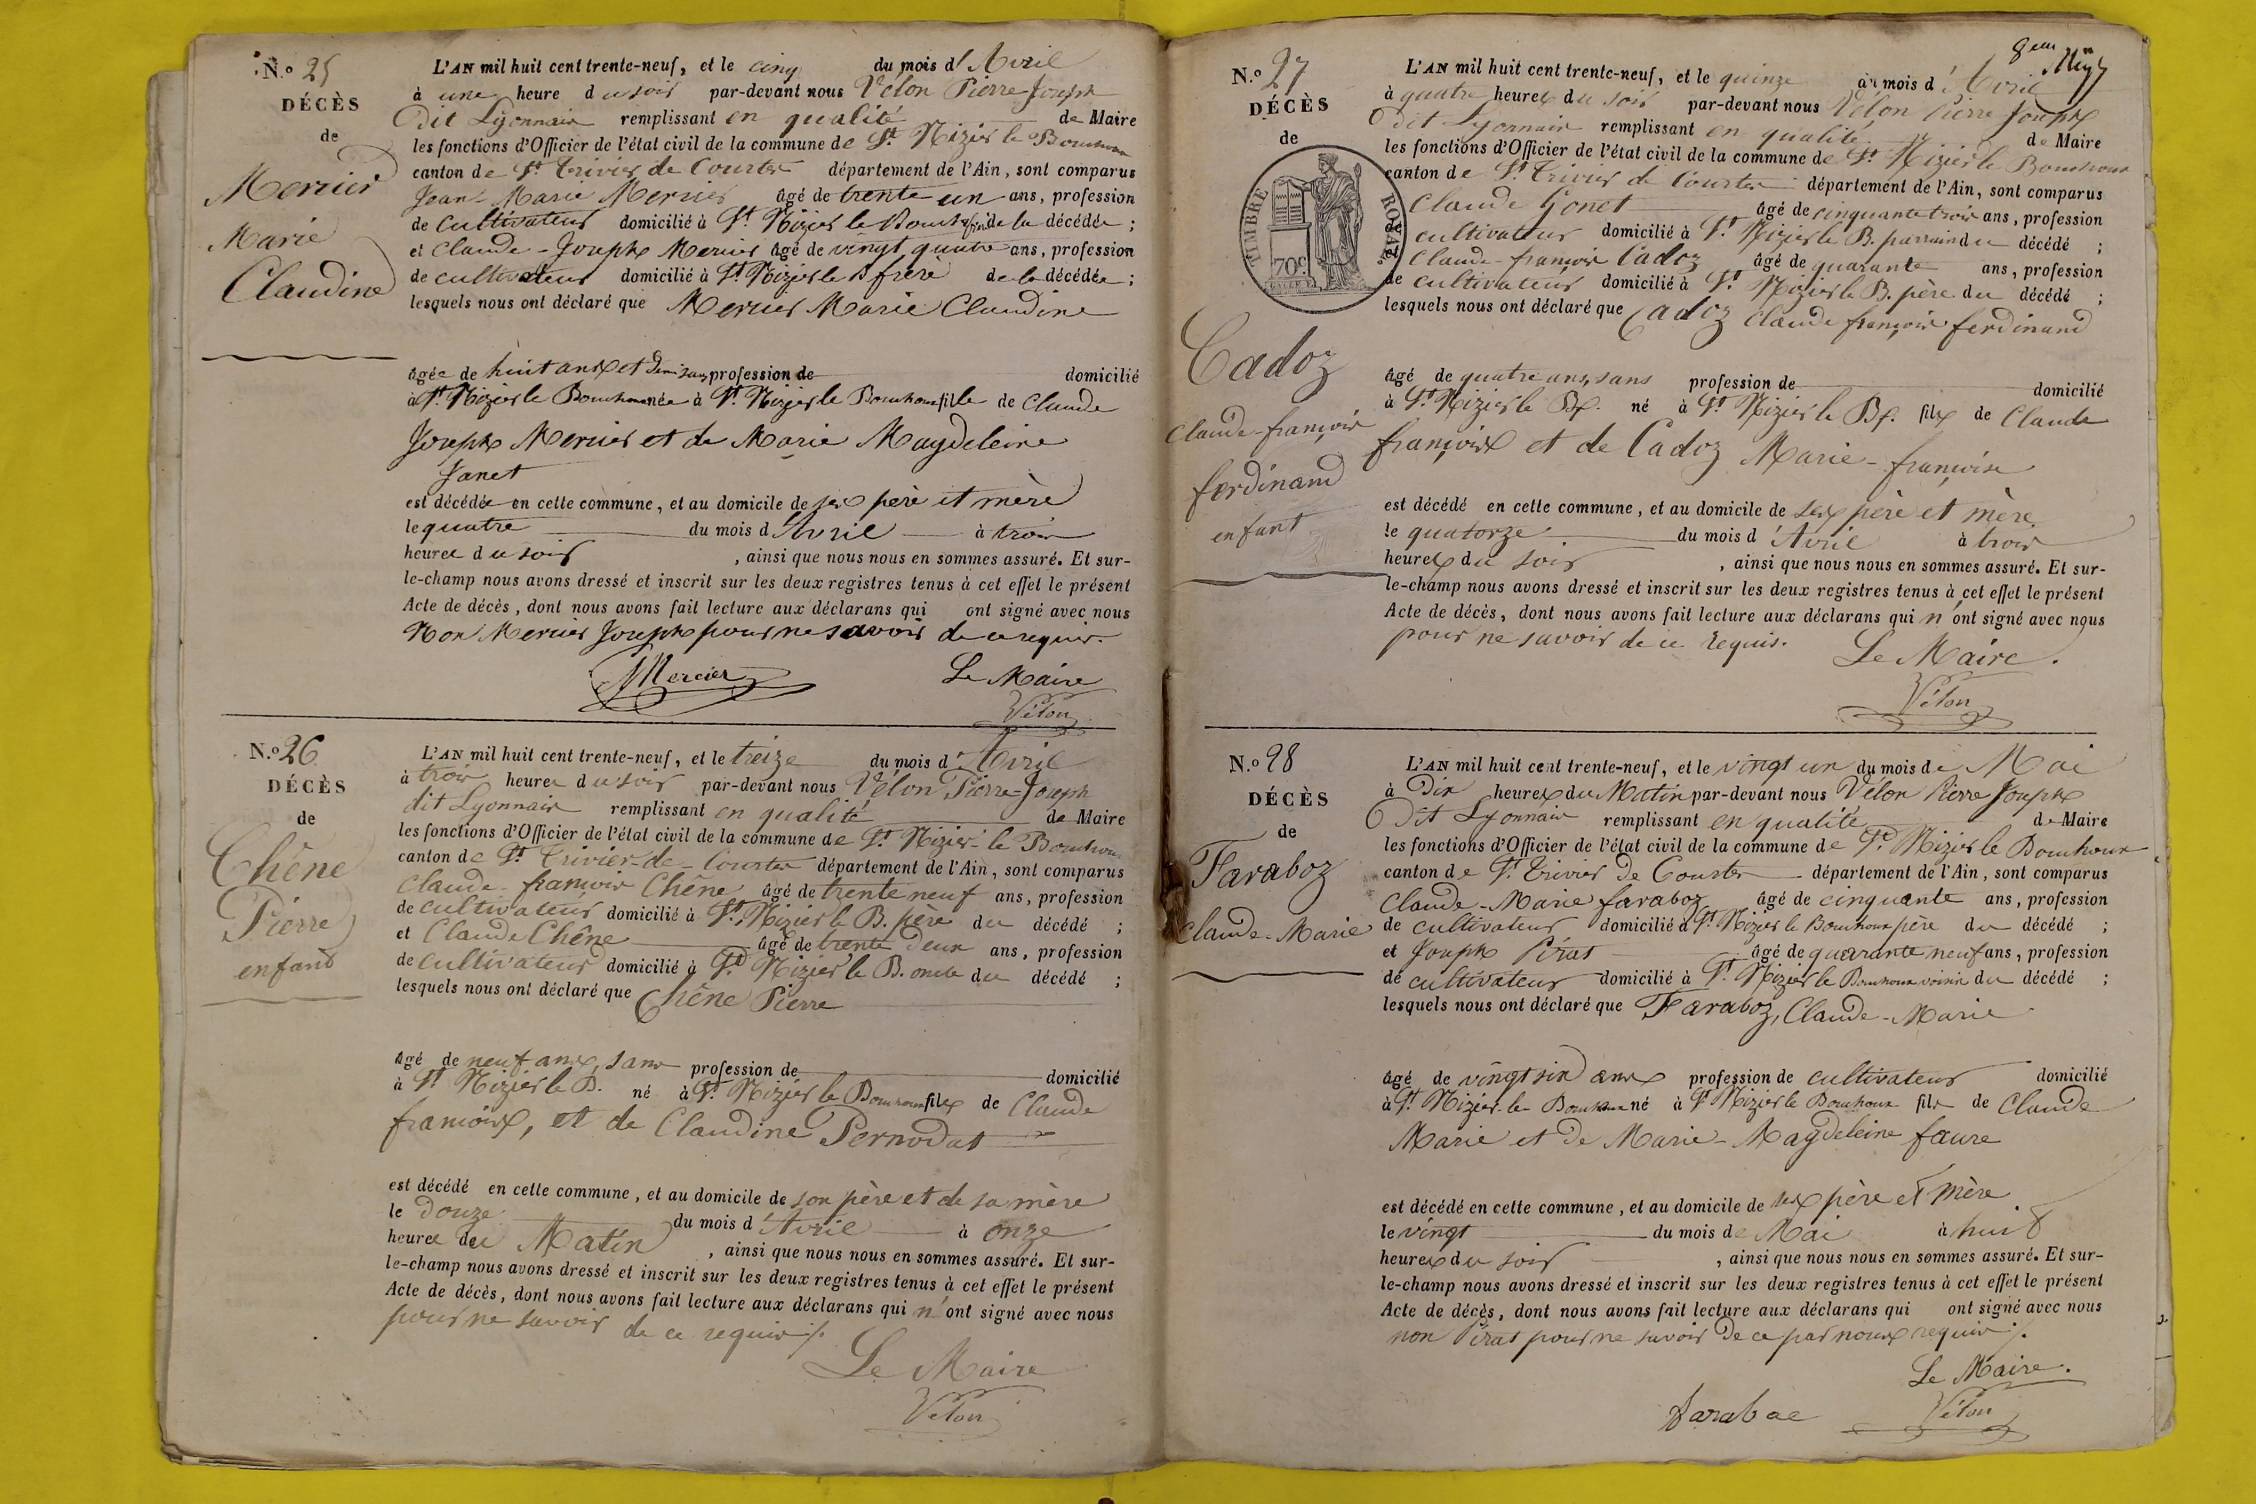 N.º 25
DÉCÈS
de
Mercier
Marie
Claudine
L'AN mil huit cent trente-neuf, et le cinq du mois d'Avril
à une heure du soir par-devant nous Vélon Pierre Joseph
dit Lyonnais remplissant en qualité de Maire
les fonctions d'Officier de l'état civil de la commune de St Nizier le Bouchoux
canton de St Trivier de Courtes département de l'Ain, sont comparus
Jean Marie Mercier âgé de trente un ans, profession
de cultivateur domicilié à St Nizier le Bouchoux de la décédée ;
et Claude-Joseph Mercier âgé de vingt quatre ans, profession
de cultivateur domicilié à St Nizier le B frère de la décédée ;
lesquels nous ont déclaré que Mercier Marie Claudine
âgée de huit ans et demi sans profession de domicilié
à St Nizier le Bouchoux née à St Nizier le Bouchoux fille de Claude
Joseph Mercier et de Marie Magdeleine
Janet
est décédée en cette commune, et au domicile de ses père et mère
le quatre du mois d'Avril à trois
heures du soir , ainsi que nous nous en sommes assuré. Et sur-
le-champ nous avons dressé et inscrit sur les deux registres tenus à cet effet le présent
Acte de décès, dont nous avons fait lecture aux déclarans qui ont signé avec nous
Non Mercier Joseph pour ne savoir de ce requis.
JMercier Le Maire
Vélon
N.º 26
DÉCÈS
de
Chêne
Pierre
enfant
L'AN mil huit cent trente-neuf, et le treize du mois d'Avril
à trois heures du soir par-devant nous Vélon Pierre-Joseph
dit Lyonnais remplissant en qualité de Maire
les fonctions d'Officier de l'état civil de la commune de St Nizier le Bouchoux
canton de St Trivier-de-Courtes département de l'Ain, sont comparus
Claude-françois Chêne âgé de trente neuf ans, profession
de cultivateur domicilié à St Nizier le B. père du décédé ;
et Claude Chêne âgé de trente deux ans, profession
de cultivateur domicilié à St Nizier le B. oncle du décédé ;
lesquels nous ont déclaré que Chêne Pierre
âgé de neuf ans, sans profession de domicilié
à St Nizier le B. né à St Nizier le Bouchoux fils de Claude
françois, et de Claudine Pernodat
est décédé en cette commune, et au domicile de son père et de sa mère
le Douze du mois d'Avril à onze
heures du Matin , ainsi que nous nous en sommes assuré. Et sur-
le-champ nous avons dressé et inscrit sur les deux registres tenus à cet effet le présent
Acte de décès, dont nous avons fait lecture aux déclarans qui n'ont signé avec nous
pour ne savoir de ce requis ./.
Le Maire
Vélon
N.º 27
DÉCÈS
de
TIMBRE ROYAL
70c
Cadoz
Claude-françois
ferdinand
enfant
L'AN mil huit cent trente-neuf, et le quinze du mois d'Avril
à quatre heures du soir par-devant nous Vélon Pierre Joseph
dit Lyonnais remplissant en qualité de Maire
les fonctions d'Officier de l'état civil de la commune de St Nizier le Bouchoux
canton de St Trivier de Courtes département de l'Ain, sont comparus
Claude Gonet âgé de cinquante trois ans, profession
cultivateur domicilié à St Nizier le B. parrain du décédé ;
Claude-françois Cadoz âgé de quarante ans, profession
de cultivateur domicilié à St Nizier le B. père du décédé ;
lesquels nous ont déclaré que Cadoz Claude françois ferdinand
âgé de quatre ans, sans profession de domicilié
à St Nizier le Bx. né à St Nizier le Bx. fils de Claude
françois et de Cadoz Marie-françoise
est décédé en cette commune, et au domicile de ses père et mère
le quatorze du mois d'Avril à trois
heures du soir , ainsi que nous nous en sommes assuré. Et sur-
le-champ nous avons dressé et inscrit sur les deux registres tenus à cet effet le présent
Acte de décès, dont nous avons fait lecture aux déclarans qui n'ont signé avec nous
pour ne savoir de ce requis.
Le Maire.
Vélon
N.º 28
DÉCÈS
de
Faraboz
Claude-Marie
L'AN mil huit cent trente-neuf, et le vingt un du mois de Mai
à Dix heures du Matin par-devant nous Vélon Pierre Joseph
Dit Lyonnais remplissant en qualité de Maire
les fonctions d'Officier de l'état civil de la commune de St Nizier le Bouchoux
canton de St Trivier De Courtes département de l'Ain, sont comparus
Claude-Marie faraboz âgé de cinquante ans, profession
de cultivateur domicilié à St Nizier le Bouchoux père du décédé ;
et Joseph Pirat âgé de quarante neuf ans, profession
de cultivateur domicilié à St Nizier le Bouchoux voisin du décédé ;
lesquels nous ont déclaré que Faraboz, Claude-Marie
âgé de vingt six ans profession de cultivateur domicilié
à St Nizier le Bouchoux né à St Nizier le Bouchoux fils de Claude
Marie et De Marie-Magdeleine faure
est décédé en cette commune, et au domicile de ses père et mère
le vingt du mois de Mai à huit
heures du soir , ainsi que nous nous en sommes assuré. Et sur-
le-champ nous avons dressé et inscrit sur les deux registres tenus à cet effet le présent
Acte de décès, dont nous avons fait lecture aux déclarans qui ont signé avec nous
non Pirat pour ne savoir De ce par nous requis ./.
Le Maire.
faraboz Vélon